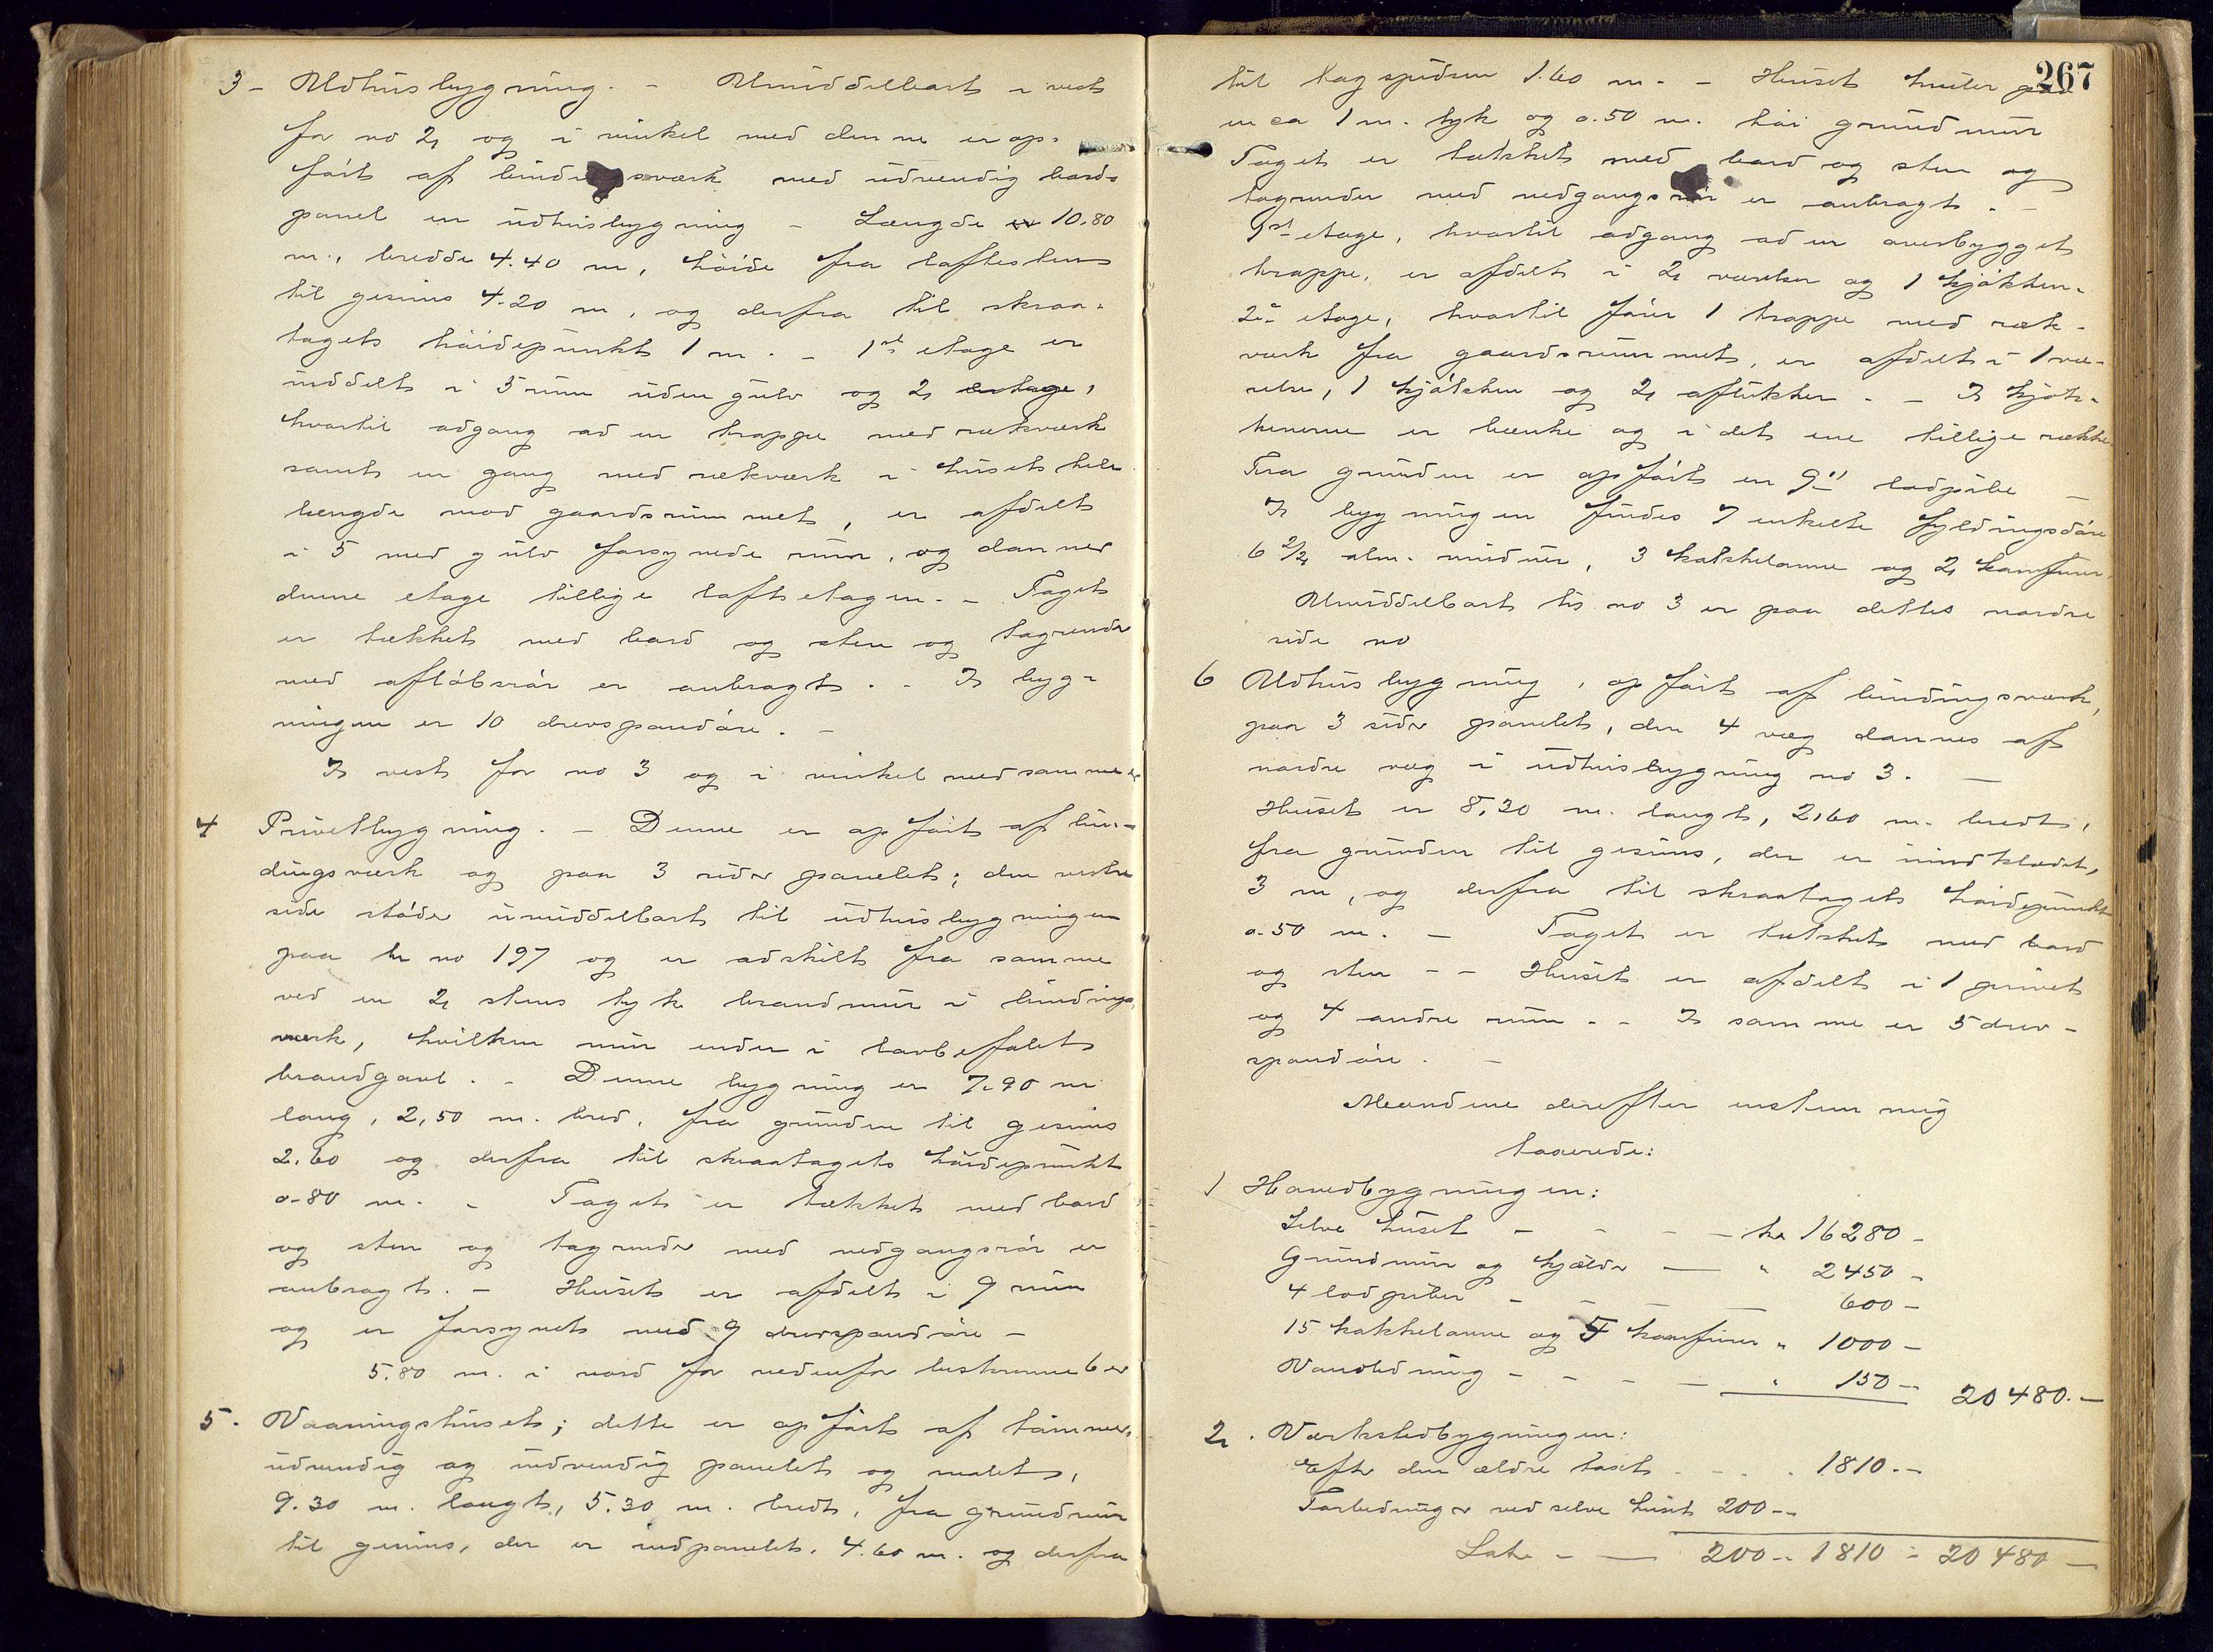 3 - Udhusbygning. - Umiddelbart i vest
for no 2 og i vinkel med denne er op-
ført af bindingsværk med udvendig bord-
panel en udhusbygning - Længde er 10.80
m., bredde 4.40 m, høide fra loftesten
til gesims 4.20 m, og derfra til skraa-
tagets høidepunkt 1 m. - 1st etage er
inddelt i 5 rum uden gulv og 2 etage,
hvortil adgang ad en trappe med rækværk
samt en gang med rækværk i husets hele
længde mod gaardsrummet, er afdelt
i 5 med gulv forsynede rum, og danner
denne etage tillige loftsetagen. - Taget
er tækket med bord og sten og tagrender
med afløbsrør er anbragt. - I byg-
ningen er 10 drevspanddøre. -
I vest for no 3 og i vinkel med samme er
4 Privetbygning. - Denne er opført af bin-
dingsværk og paa 3 sider panelet; den vestre
side støder umiddelbart til udhusbygningen
paa br no 197 og er adskilt fra samme
ved en 2 stens tyk brandmur i bindings
værk, hvilken mur ender i lovbefalet
brandgavl. - Denne bygning er 7.90 m
lang, 2,50 m. bred, fra grunden til gesims
2.60 og derfra til skraatagets høidepunkt
0.80 m. - Taget er tækket med bord
og sten og tagrender med nedgangsrør er
anbragt. - Huset er afdelt i 9 rum
og er forsynet med 9 drevspanddøre -
5.80 m. i nord for nedenfor beskrevne 6 er
5. Vaaningshuset; dette er opført af tømmer,
udvendig og indvendig panelet og malet,
9.30 m. langt, 5.30 m. bredt, fra grundmur
til gesims, der er indpanelet, 4.60 m. og derfra
267
til tagspidsen 1.60 m. - Huset hviler paa
en ca 1 m. tyk og 0.50 m. høi grundmur
Taget er tækket med bord og sten og
tagrender med nedgangsrør er anbragt. -
1st etage, hvortil adgang ad en overbygget
trappe, er afdelt i 2 værelser og 1 kjøkken.
2n etage, hvortil fører 1 trappe med ræk-
værk fra gaardsrummet, er afdelt i 1 væ-
relse, 1 kjøkken og 2 aflukker. - I kjøk-
kenerne er bænke og i det ene tillige række
Fra grunden er opført en 9" lodpibe -
I bygningen findes 7 enkelte fyldingsdøre
6 2/2 alm. vinduer, 3 kakkelovne og 2 komfurer.
Umiddelbart til no 3 er paa dettes nordre
side no
6 Udhusbygning, opført af bindingsværk,
paa 3 sider panelet, den 4 væg dannes af
nordre væg i udhusbygning no 3. -
Huset er 8,30 m. langt, 2,60 m. bredt,
fra grunden til gesims, der er indklædt,
3 m, og derfra til skraatagets høidepunkt
0.50 m. - Taget er tækket med bord
og sten - - Huset er afdelt i 1 privet
og 4 andre rum. - I samme er 5 drev-
spanddøre. -
Mændene derefter enstemmig
taxerede:
1 Hovedbygningen:
Selve huset - - - - kr 16280 -
Grundmur og kjælder - " 2450 -
4 lodpiber - - - - 600 -
15 kakkelovne og 5 komfurer " 1000 -
Vandledning - - - - " 150 - 20480. -
2. Værkstedbygningen:
Efter den ældre taxt - - . . 1810. -
Forbedringer ved selve huset 200 - -
Lat. - - 200 - 1810 - 20480 -